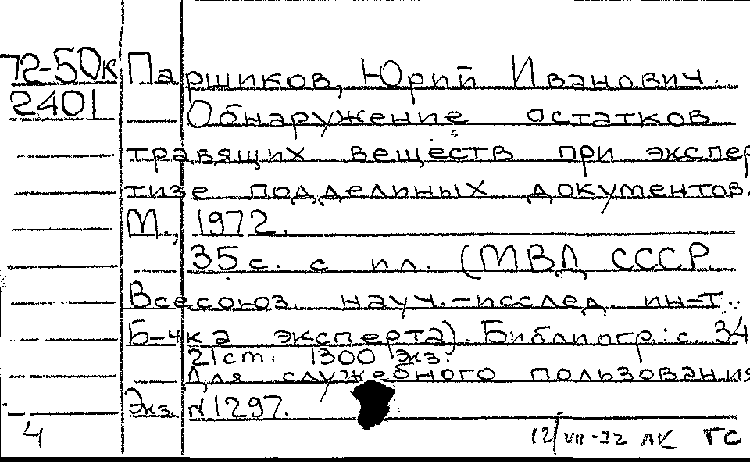 72-50к Паршиков, Юрий Иванович.
2401 Обнаружение остатков
травящих веществ при экспер
тизе поддельных документов.
М., 1972.
35 с. с ил. (МВД СССР.
Всесоюз. науч.-исслед. ин-т.
Б-чка эксперта). Библиогр.: с. 34
21 см. 1300 экз.
Для служебного пользования
Экз. №1297.
4 12/VII-72 ЛК ГС